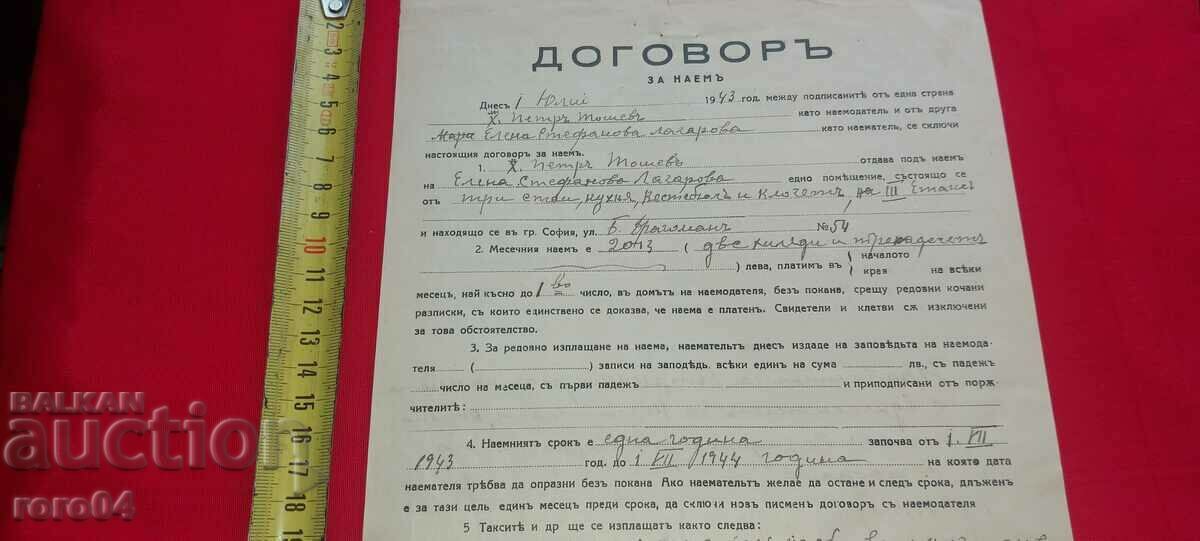 ДОГОВОРЪ
ЗА НАЕМЪ
Днесъ 1 Юлий 1943 год. между подписанитѣ отъ една страна
X. Петръ Тошевъ като наемодатель и отъ друга
Елена Стефанова Лагарова като наематель, се сключи
настоящия договоръ за наемъ.
1. X. Петръ Тошевъ отдава подъ наемъ
на Елена Стефанова Лагарова едно помѣщение, състоящо се
отъ три стаи, кухня, и Клозетъ, на III Етажъ
и находящо се въ гр. София, ул. Б. Драгоманъ № 54
2. Месечния наемъ е 2013 ( две хиляди и
) лева, платимъ въ началото края на всѣки
месецъ, най късно до 1 во число, въ домътъ на наемодателя, безъ покана, срещу редовни кочани
разписки, съ които единствено се доказва, че наема е платенъ. Свидетели и клетви сѫ изключени
за това обстоятелство.
3. За редовно изплащане на наема, наемательтъ днесъ издаде на заповѣдьта на наемода-
теля ( ) записи на заподѣдь. всѣки единъ на сума лв., съ падежъ
число на месеца, съ първи падежъ и приподписани отъ порѫ-
чителитѣ:
4. Наемниятъ срокъ е една година започва отъ 1. VII
1943 год. до 1 VII 1944 година на която дата
наемателя трѣбва да опразни безъ покана Ако наемательтъ желае да остане и следъ срока, длъженъ
е за тази цель единъ месецъ преди срока, да сключи новъ писменъ договоръ съ наемодателя
5 Таксите и др ще се изплащатъ както следва:
2
3
4
5
6
7
8
9
10
11
12
13
14
15
16
17
18
BALKAN
auction
roro04